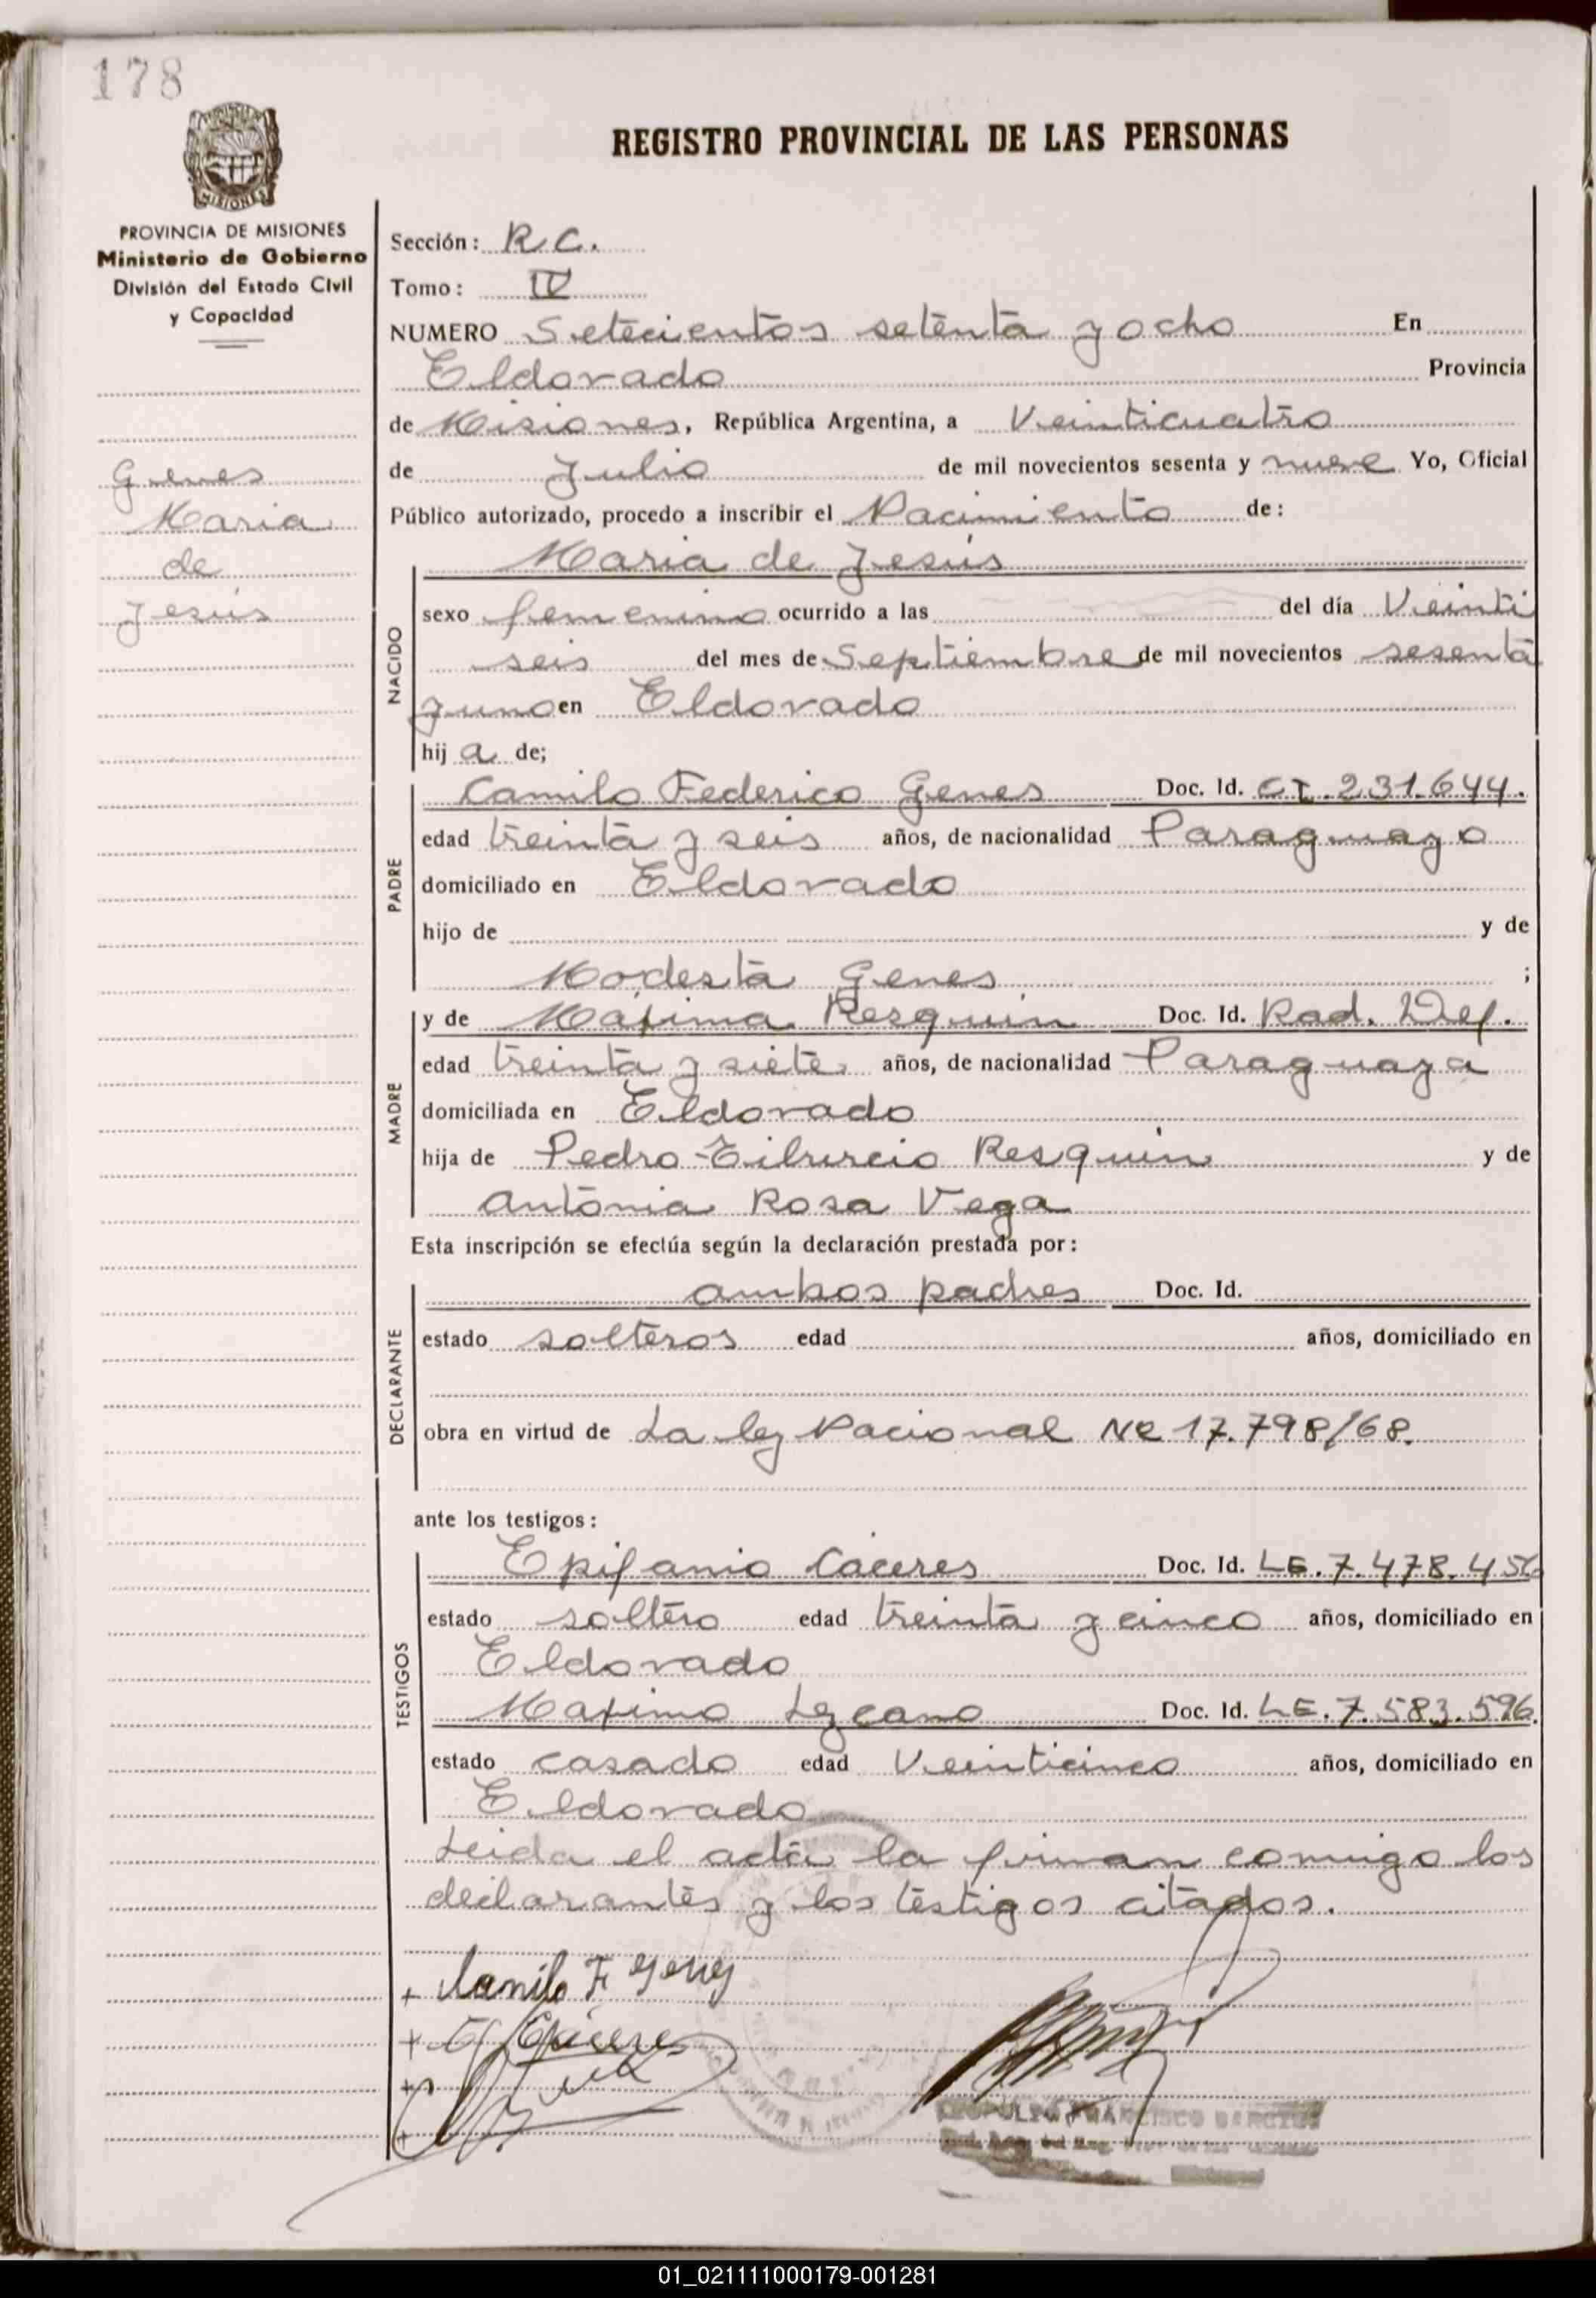 178
PROVINCIA DE MISIONES
Ministerio de Gobierno
División del Estado Civil
y Capacidad
Genes
Maria
de
Jesús
REGISTRO PROVINCIAL DE LAS PERSONAS
Sección: R.C.
Tomo: IV
NUMERO Setecientos setenta y ocho En
Eldorado Provincia
de Misiones, República Argentina, a Veinticuatro
de Julio de mil novecientos sesenta y nueve Yo, Oficial
Público autorizado, procedo a inscribir el Nacimiento de:
Maria de Jesús
NACIDO
sexo femenino ocurrido a las del día Veinti
seis del mes de Septiembre de mil novecientos sesenta
y uno en Eldorado
hij a de;
PADRE
Camilo Federico Genes Doc. Id. CI. 231.644.
edad treinta y seis años, de nacionalidad Paraguayo
domiciliado en Eldorado
hijo de y de
Modesta Genes ;
MADRE
y de Máxima Resquin Doc. Id. Rad. Def.
edad treinta y siete años, de nacionalidad Paraguaya
domiciliada en Eldorado
hija de Pedro Tiburcio Resquin y de
Antonia Rosa Vega
Esta inscripción se efectúa según la declaración prestada por:
DECLARANTE
ambos padres Doc. Id.
estado solteros edad años, domiciliado en
obra en virtud de La ley Nacional Nº 17.798/68.
ante los testigos:
TESTIGOS
Epifanio Cáceres Doc. Id. LE. 7.478.456
estado soltero edad treinta y cinco años, domiciliado en
Eldorado
Maximo Lezcano Doc. Id. LE. 7.583.596.
estado casado edad Veinticinco años, domiciliado en
Eldorado
Leida el acta la firman conmigo los
declarantes y los testigos citados.
+ Camilo F. Genes
+ E. Cáceres
+
+
FRANCISCO
01_021111000179-001281